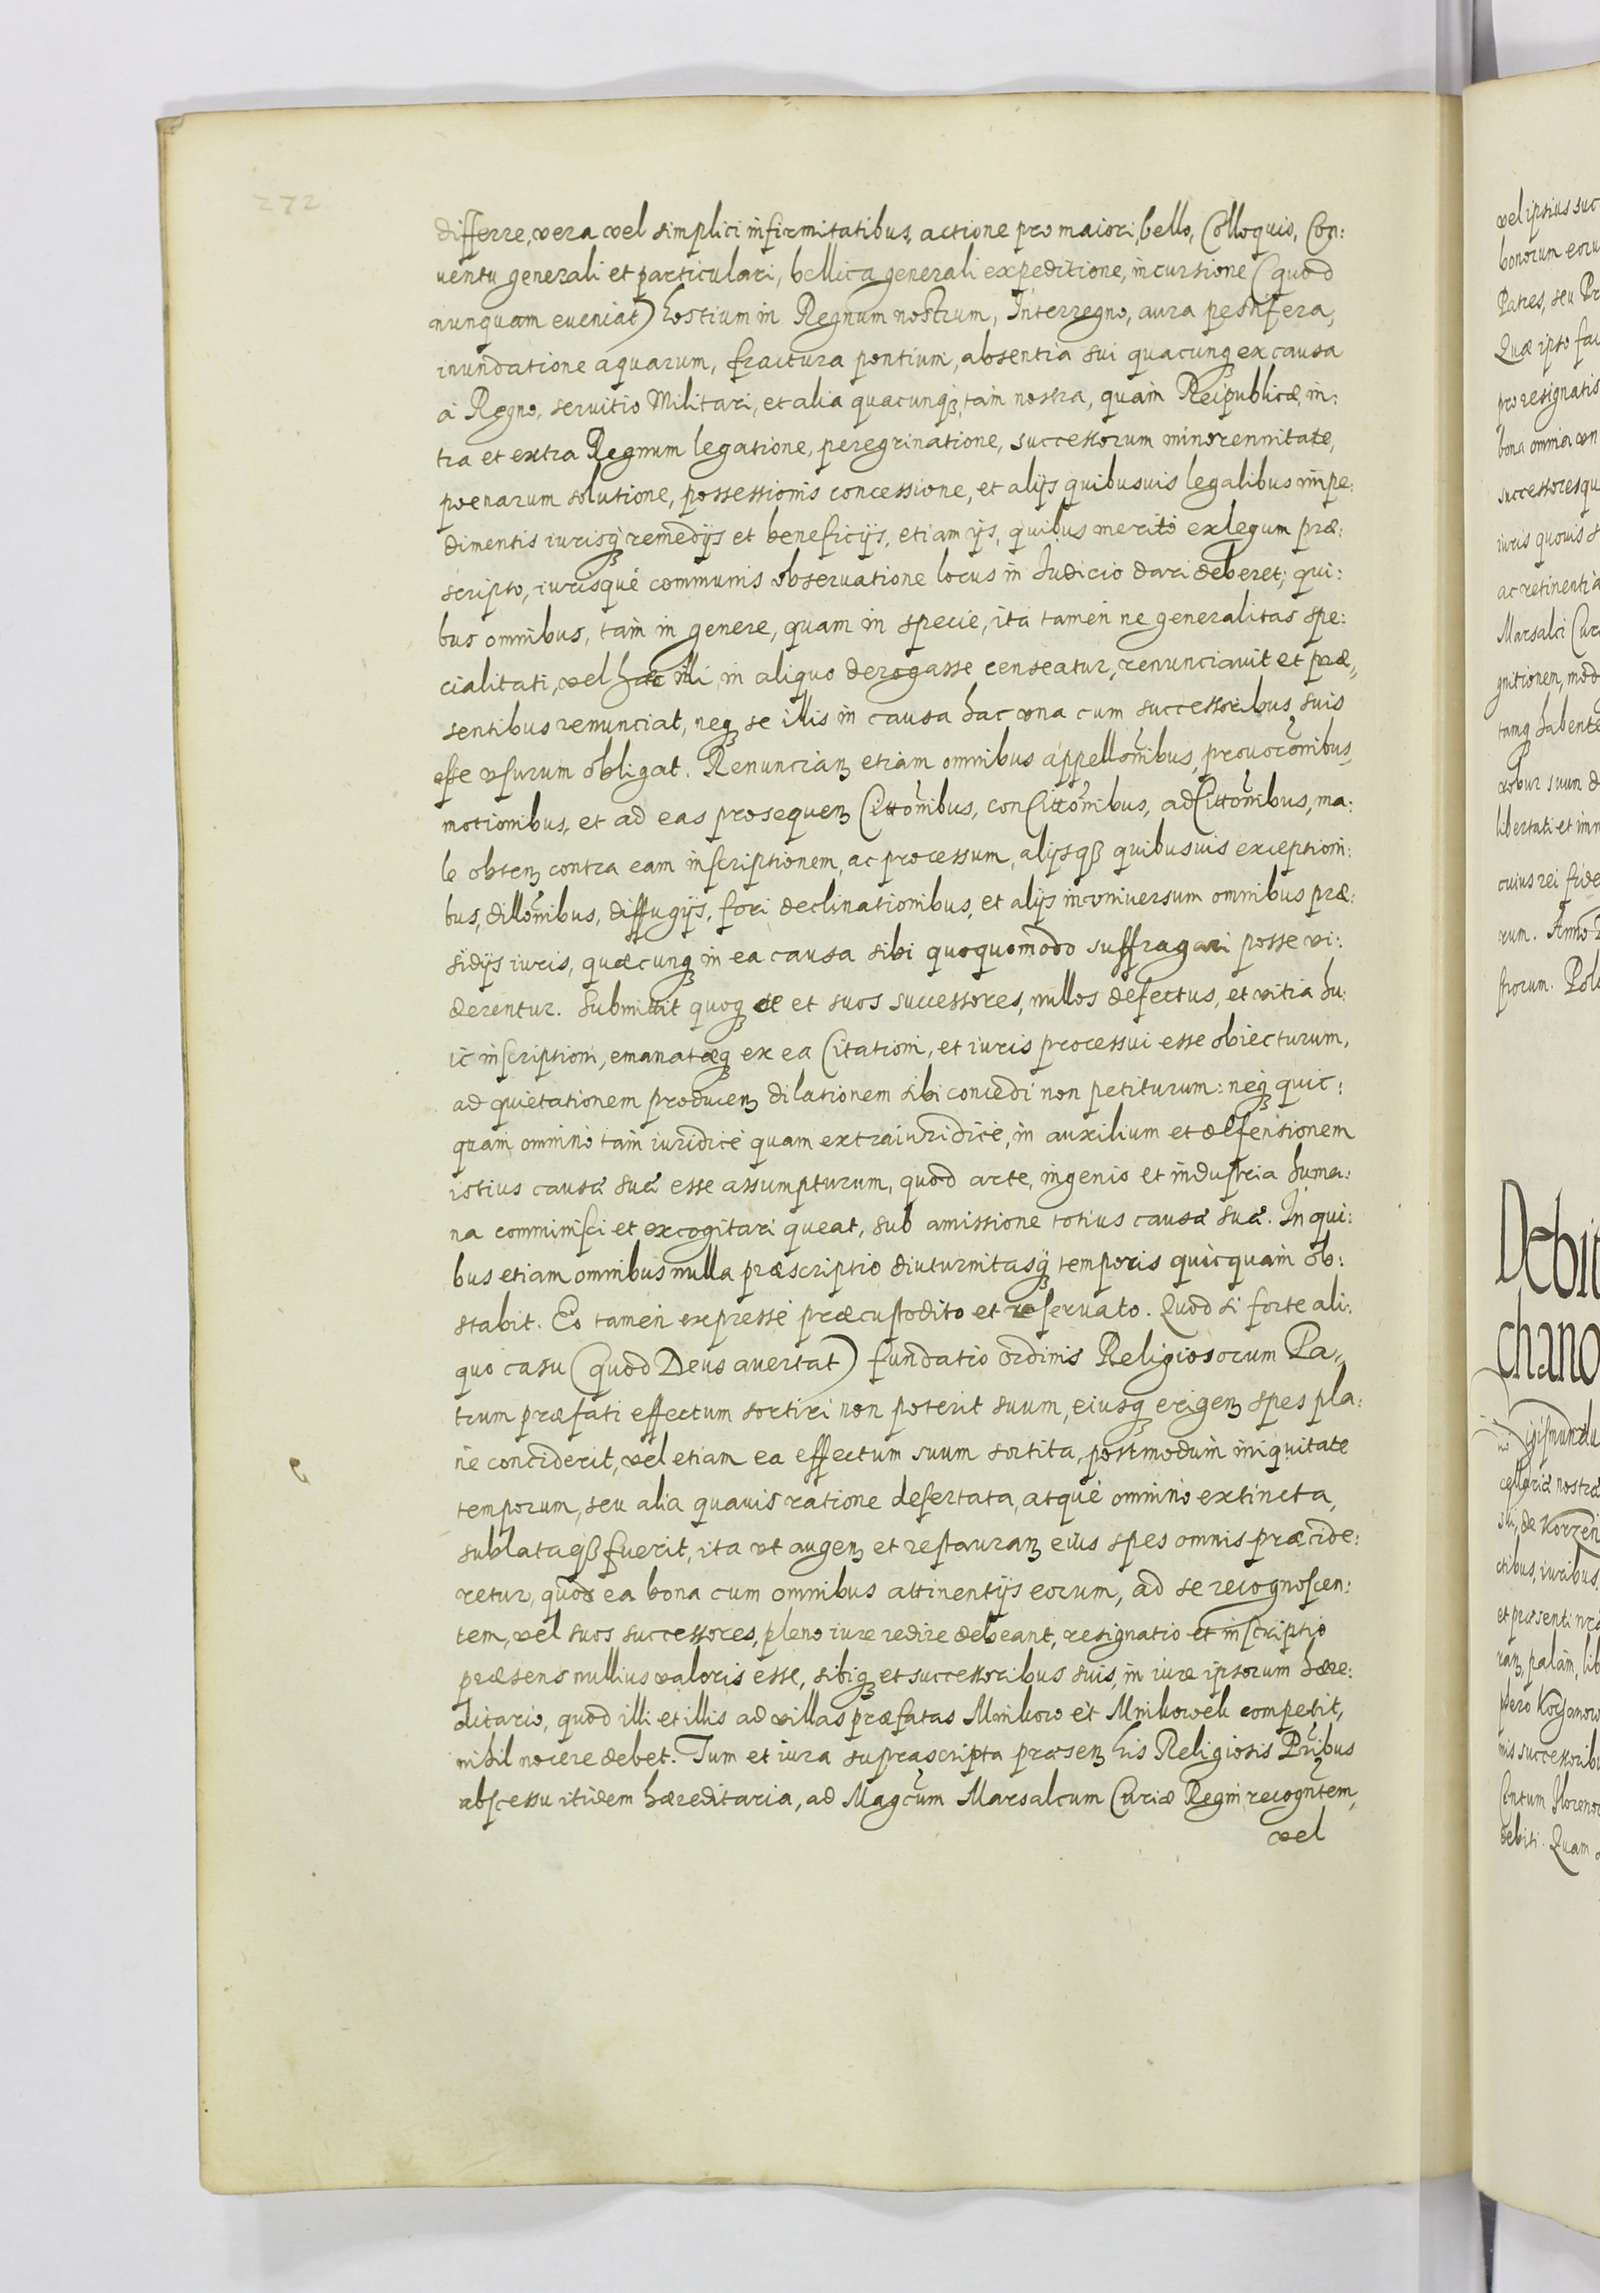 272
differre, vera vel simplici infirmitatibus, actione pro maiori, bello, Colloquio, Con:
uentu generali et particulari, bellica generali expeditione, incursione (quod
nunquam eueniat) hostium in Regnum nostrum, Interregno, aura pestifera,
inundatione aquarum, fractura pontium, absentia sui quacunqȝ ex causa
à Regno, seruitio Militari, et alia quacunqȝ, tam nostra, quam Reipublicæ, in:
tra et extra Regnum legatione, peregrinatione, successorum minorennitate,
poenarum solutione, possessionis concessione, et alijs quibusuis legalibus impe:
dimentis iurisqȝ remedijs et beneficijs, etiam ijs, quibus meritò ex legum præ:
scripto, iurisque communis obseruatione locus in Iudicio dari deberet; qui:
bus omnibus, tam in genere, quam in specie, ita tamen ne generalitas spe:
cialitati, vel hæc illi, in aliquo derogasse censeatur, renunciauit et præ,
sentibus renunciat, neqȝ se illis in causa hac vna cum successoribus suis
esse vsurum obligat. Renuncianȝ etiam omnibus appellõnibus, prouocõnibus,
motionibus, et ad eas prosequenȝ Cittõnibus, conCittõnibus, adCittõnibus, ma:
le obtenȝ contra eam inscriptionem, ac processum, alijsqȝ quibusuis exceptioni:
bus, dillõnibus, diffugijs, fori declinationibus, et alijs in vniuersum omnibus præ:
sidijs iuris, quæcunqȝ in ea causa sibi quoquomodo suffragari posse vi:
derentur. Submittit quoqȝ se et suos successores, nullos defectus, et vitia hu:
ic inscriptioni, emanatæqȝ ex ea Citationi, et iuris processui esse obiecturum,
ad quietationem producenȝ dilationem sibi concedi non petiturum: neqȝ quic:
quam omninò tam iuridicè quam extraiuridicè, in auxilium et defensionem
istius causæ suæ esse assumpturum, quod arte, ingenio et industria huma:
na comminisci et excogitari queat, sub amissione totius causæ suæ. In qui:
bus etiam omnibus nulla præscriptio diuturnitasqȝ temporis quicquam ob:
stabit. Eo tamen expressè præcustodito et reseruato. Quod si forte ali:
quo casu (quod Deus auertat) fundatio ordinis Religiosorum Pa,,
trum præfati effectum sortiri non poterit suum, eiusqȝ erigenȝ spes pla:
nè conciderit, vel etiam ea effectum suum sortita, postmodum iniquitate
temporum, seu alia quauis ratione desertata, atque omninò extincta,
sublataqȝ fuerit, ita vt augenȝ et restauranȝ eius spes omnis præcide:
retur, quod ea bona cum omnibus attinentijs eorum, ad se recognoscen:
tem, vel suos successores, pleno iure redire debeant, resignatio et inscriptio
præsens nullius valoris esse, sibiqȝ et successoribus suis, in iure ipsorum hære:
ditario, quod illi et illis ad villas præfatas Mnikow et Mnikowek competit,
nihil nocere debet. Tum et iura suprascripta præsenȝ his Religiosis Pribus
abscessu itidem hæreditaria, ad Magcum Marsalcum Curiæ Regni recogntem,
vel
vel ipsius suc
bonorum eoru
Patres, seu Pr
Quæ ipso fac
pro resignatis
bona omnia vn
successoresqu
iuris quouis
ac retinentia
Marsalci Cur
gnitionem, mod
tanqȝ habente
robur suum
libertati et imm
cuius rei fide
rum. Anno
strorum. Polo
Debit
chano
igismundu
cellariæ nostræ
ski, de Korzeni
ctibus, iuribus,
et præsenti
ranȝ, palàm, lib
ptero Kochanow
nis successorib
Centum floreno
debiti. Quam